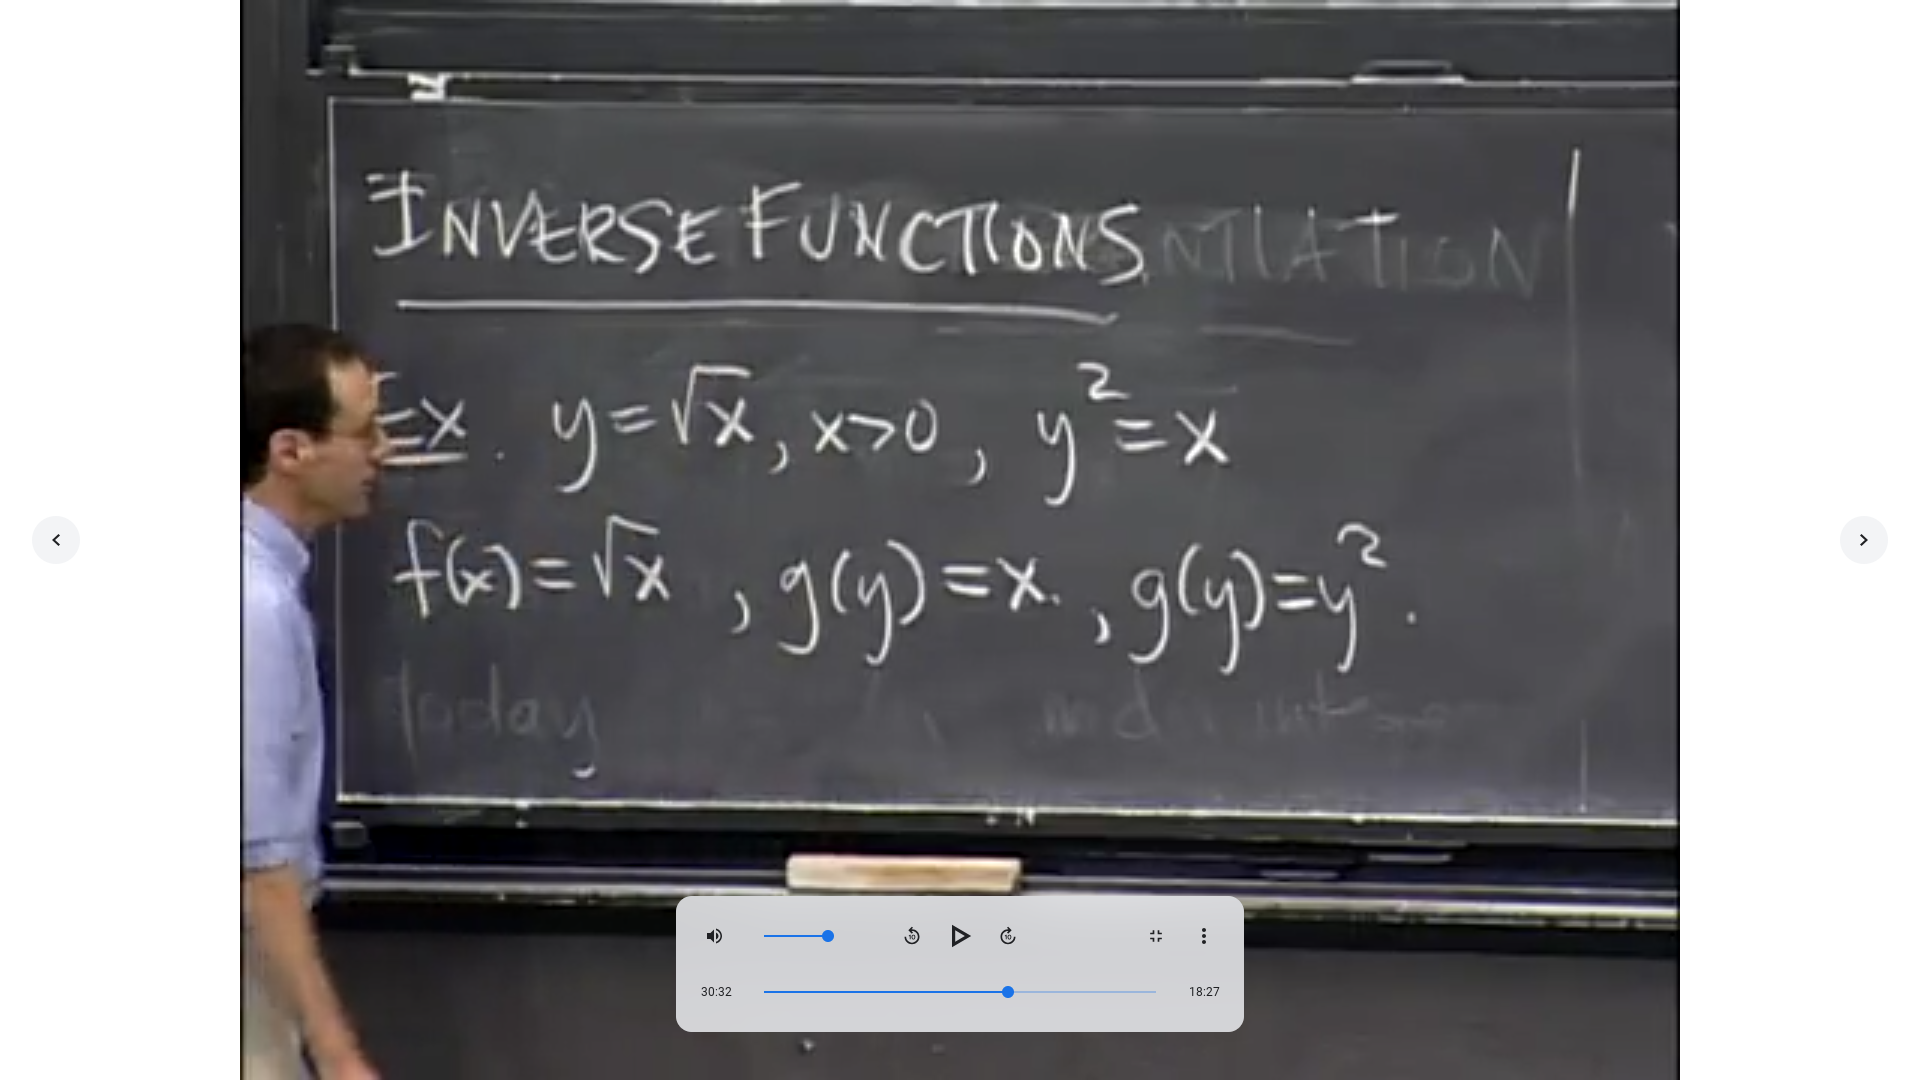 INVERSE FUNCTIONS
NTIATION
Ex. y=√x, x>0, y²=x
f(x)=√x, g(y)=x., g(y)=y².
today
30:32
18:27